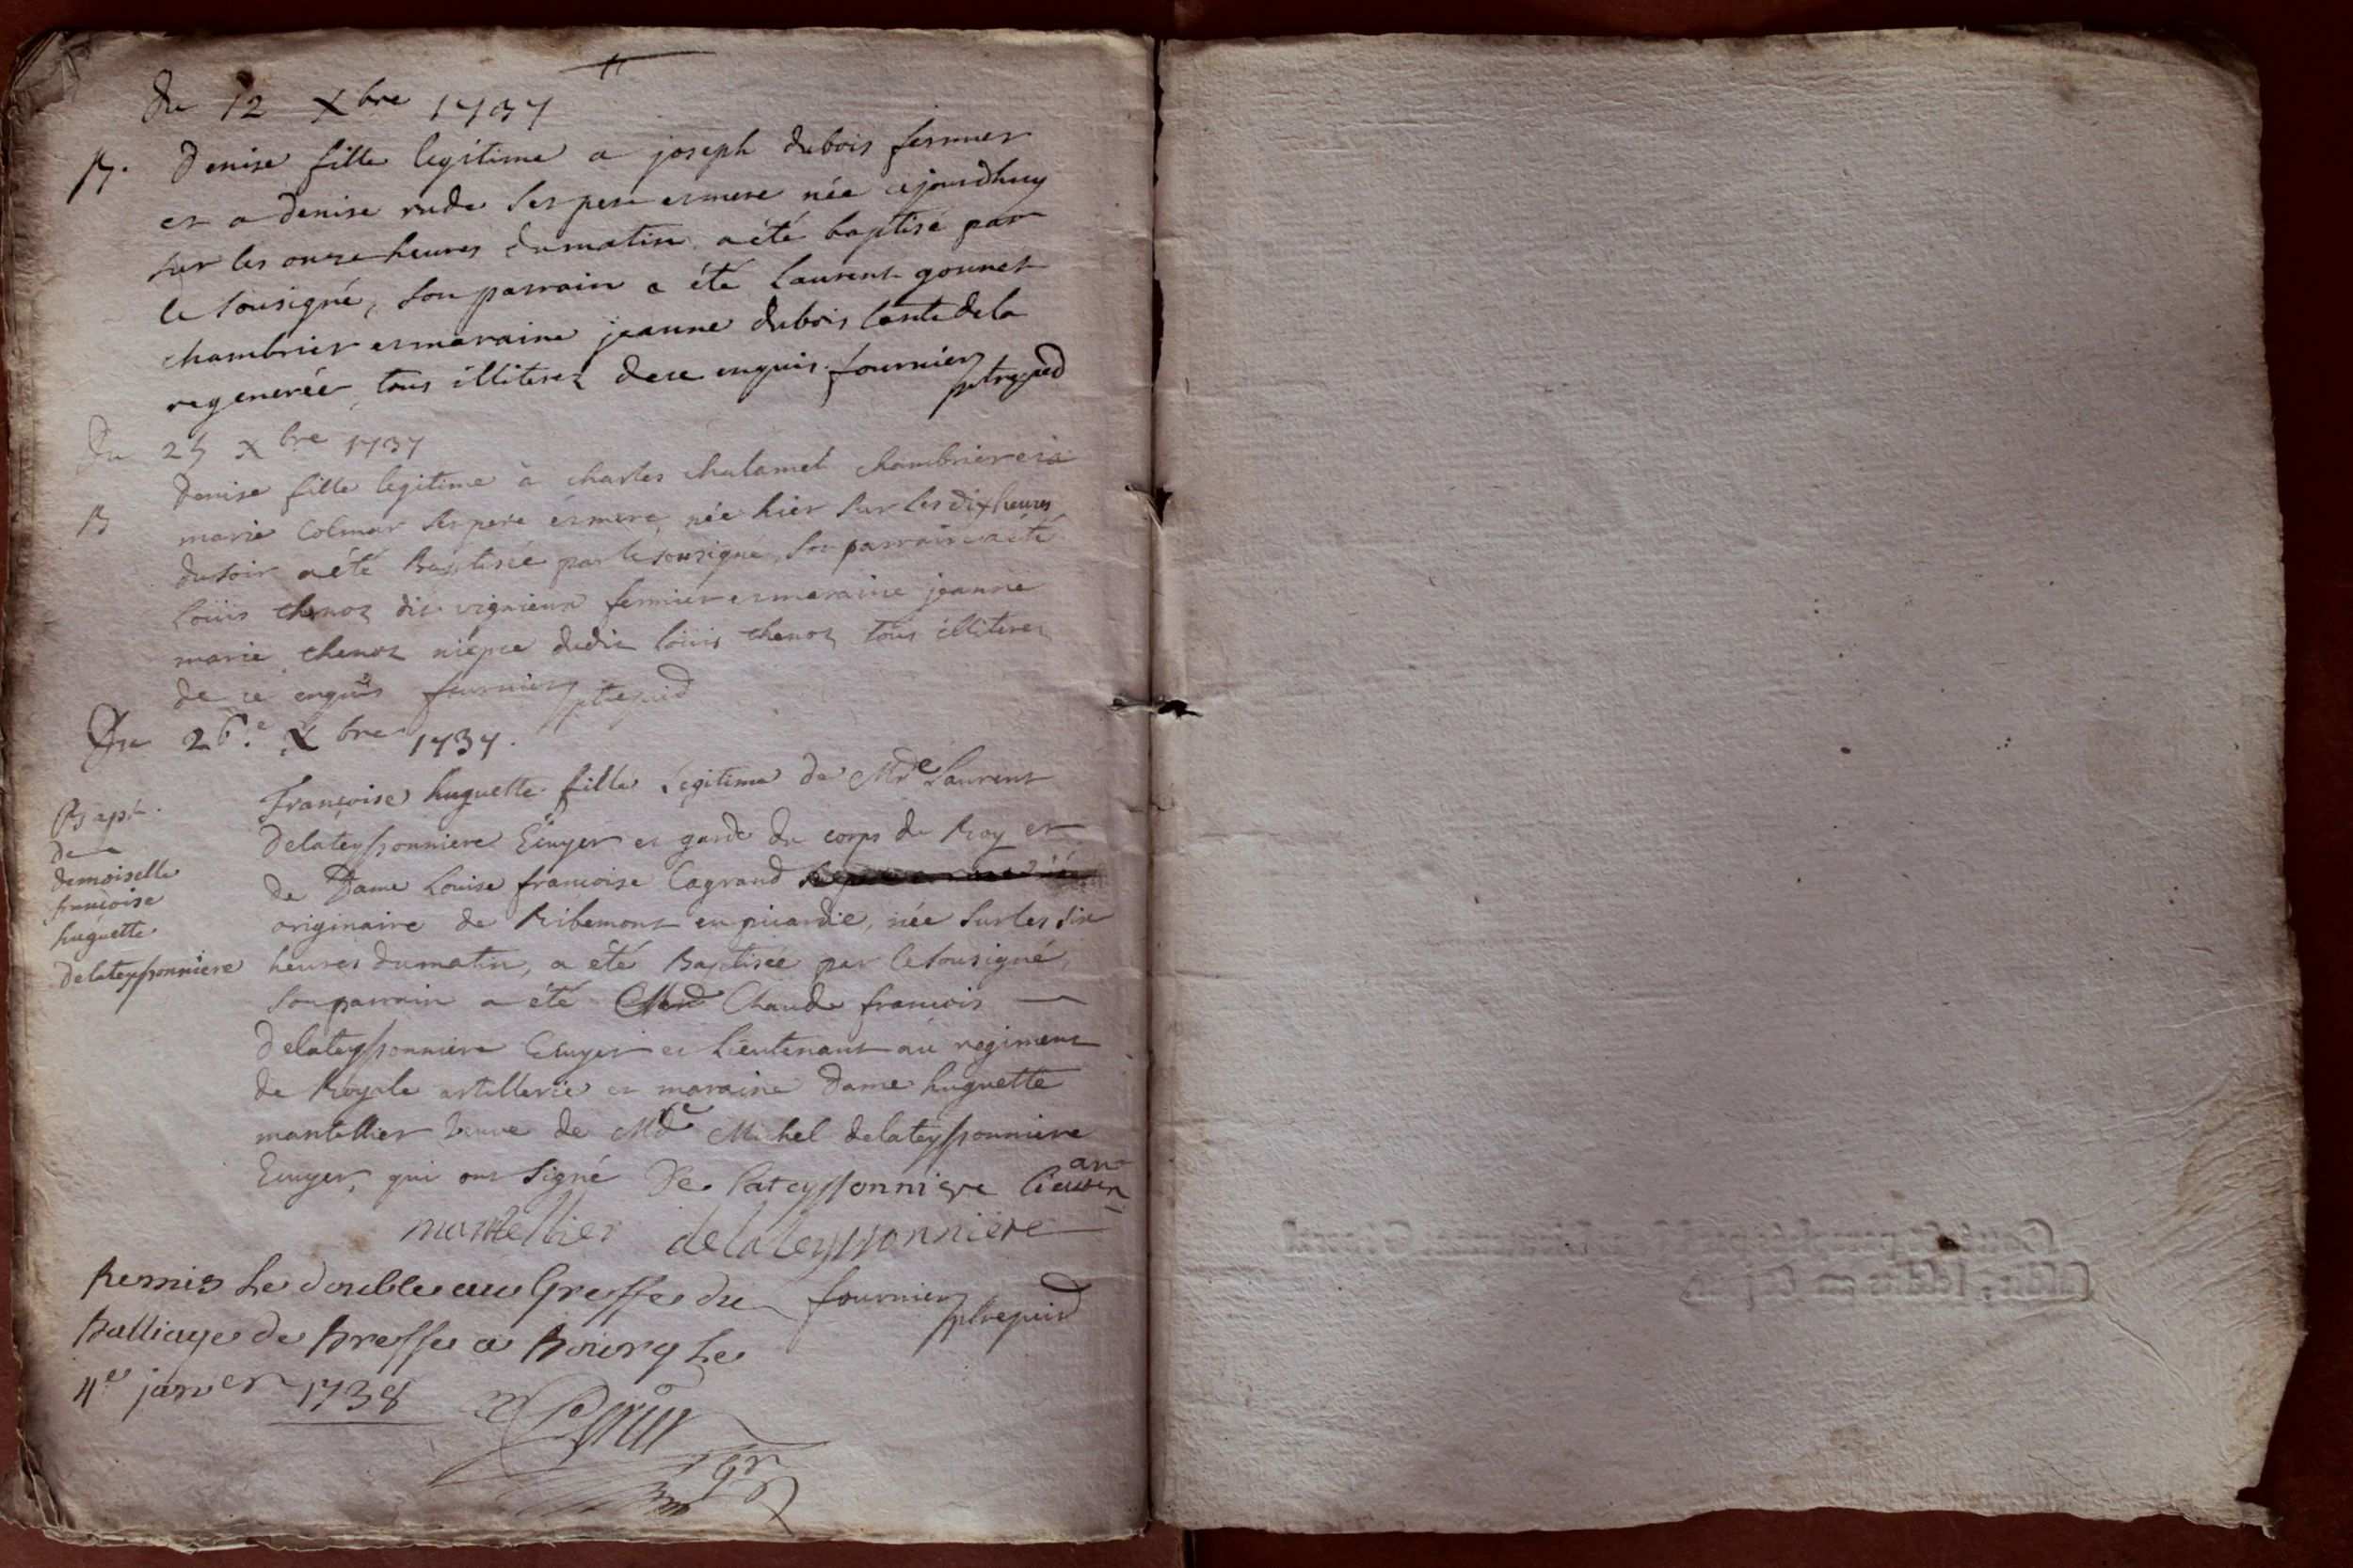 Du 12 Xbre 1737
B. Denise fille legitime a joseph dubois fermier
et a denise rude ses pere et mere née cejourdhuy
sur les onze heures du matin a été baptisé par
le sousigné, son parrain a été laurent gonnet
chambrier et maraine jeanne dubois tante de la
regenerée tous illiterez de ce enquis. fournier
ptre
Du 25 Xbre 1737
Denise fille legitime à charles chalamel chambrier et à
B marie Colmar ses pere et mere, née hier sur les dix heures
du soir a été Baptisée par le sousigné, son parrain a été
loüis chenoz dit vignieux fermier et maraine jeanne
marie chenoz niépce dudit loüis chenoz tous illiterez
de ce enquis fournier
ptre
Du 26.e Xbre 1737.
Bapt.
de
demoiselle
françoise
huguette
Delateyssonniere
françoise huguette fille Legitime de Mre Laurent
Delateyssonniere Ecuyer et garde du corps du Roy et
de Dame Louise francoise Lagrand
originaire de Ribemont en picardie, née sur les dix
heures du matin, a été Baptisée par le sousigné,
son parrain a été Claude françois
Delateyssonniere Ecuyer et Lieutenant au regiment
de Royale artillerie et maraine Dame huguette
mantellier veuve de Michel delateyssonniere
Ecuyer, qui ont signé De Lateyssonniere
mantellier delateyssonniere
Remis Le double au Greffe du fournier
Balliage de Bresse a Bourg Le ptre
4e janver 1738